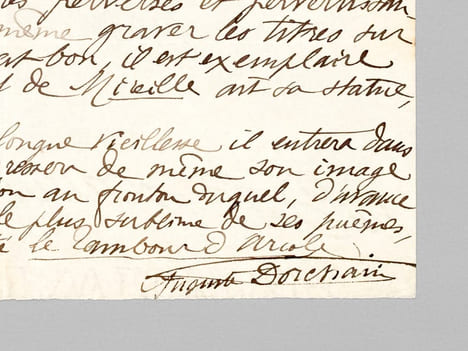 perverses et pervertissan
même graver les titres sur
at bon, il est exemplaire
de Mireille ait sa statue,
longue vieillesse il entrera dans
de même son image
au fronton duquel, d'avance
le plus sublime de ses poèmes,
le Tambour d'Arcole.
Auguste Dorchain